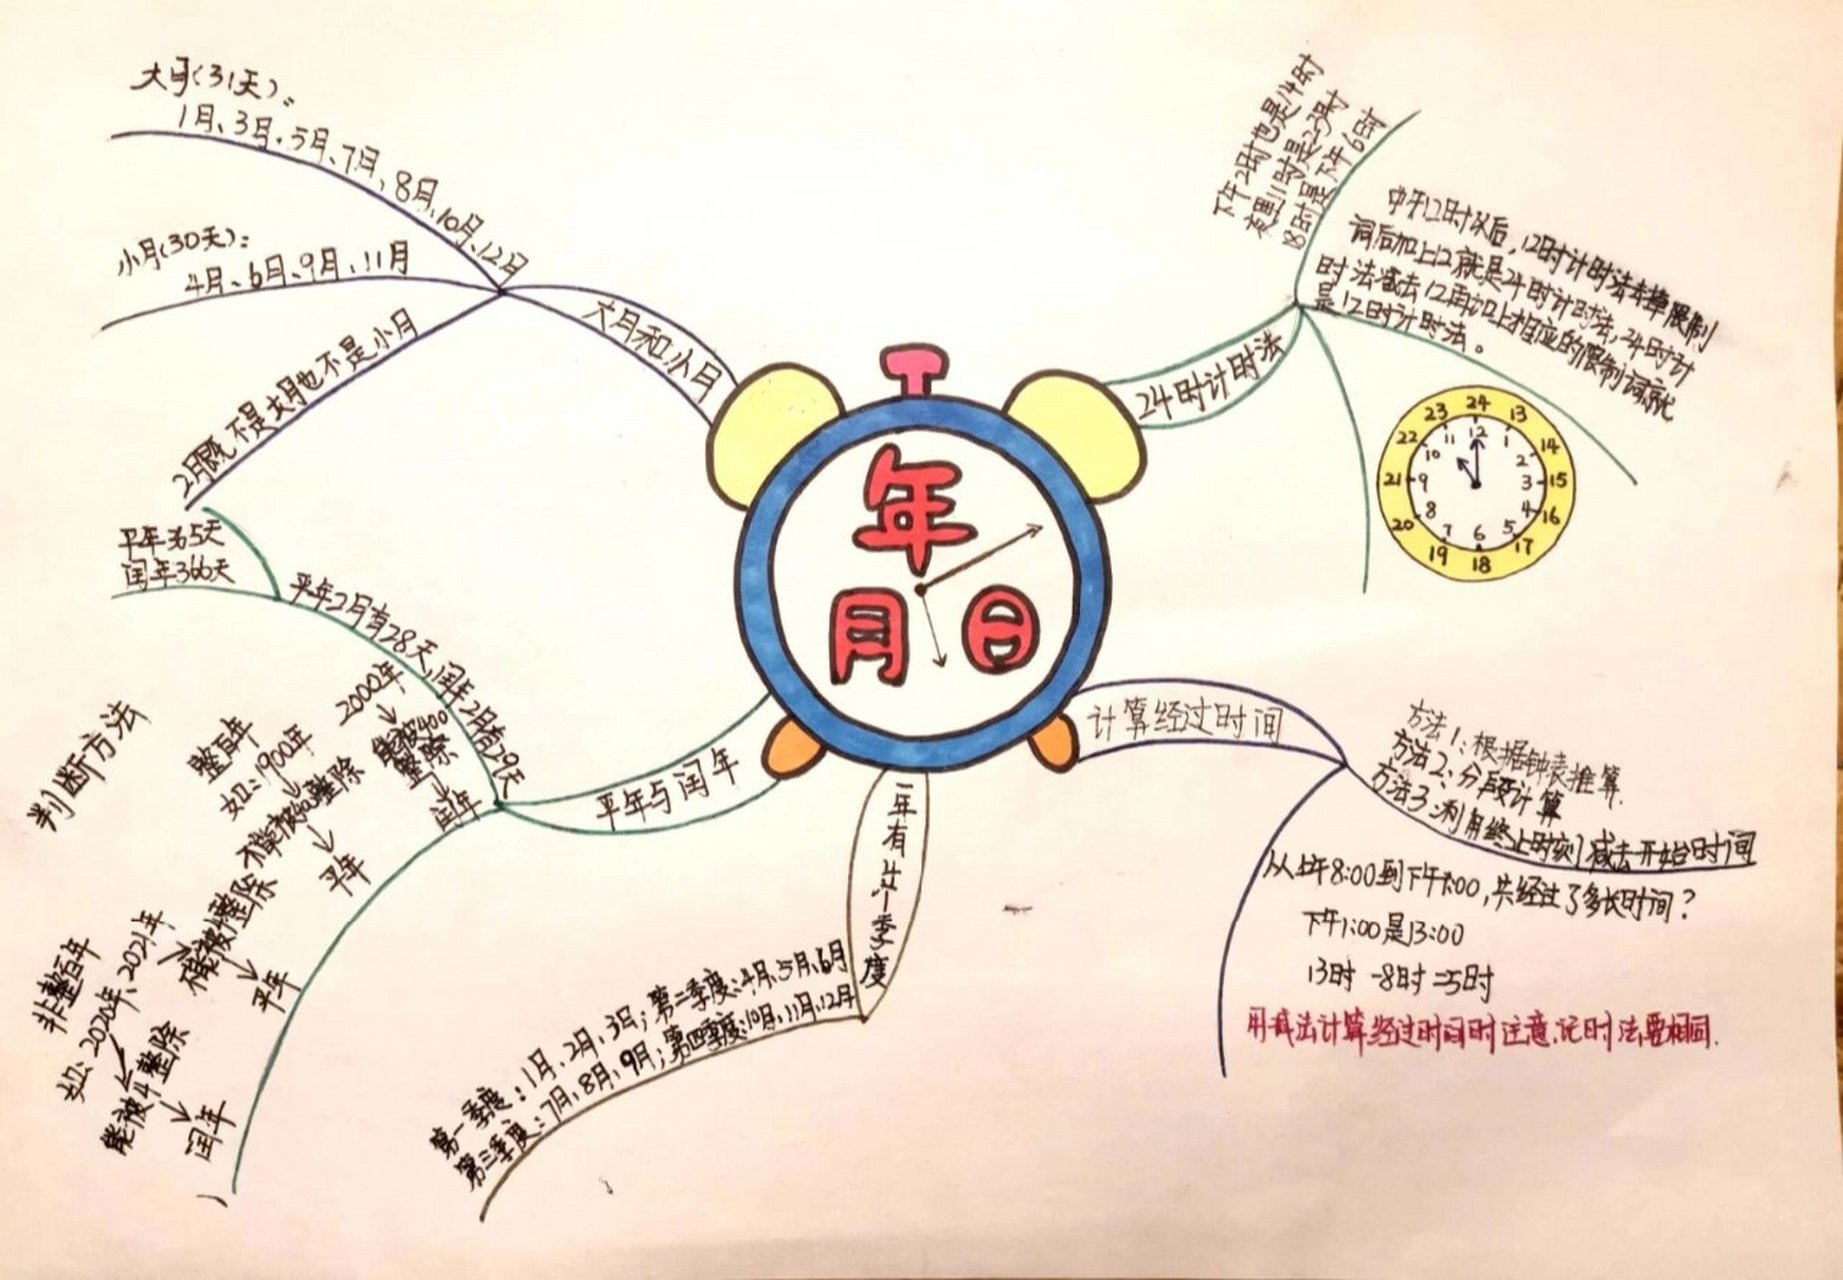 年
月 日
大月和小月
大月(31天):
1月、3月、5月、7月、8月、10月、12月
小月(30天):
4月、6月、9月、11月
2月既不是大月也不是小月
24时计时法
下午2时也是14时
夜里11时是23时
18时是下午6时
中午12时以后，12时计时法去掉限制
词后加上12就是24时计时法，24时计
时法减去12再加上相应的限制词就
是12时计时法。
24 13 14 15 16 17 18 19 20 21 22 23
12 1 2 3 4 5 6 7 8 9 10 11
平年与闰年
平年365天
闰年366天
平年2月有28天，闰年2月有29天
判断方法
整百年
如：900年
不能被400整除
平年
2000年
能被400
整除
闰年
非整百年
如：2020年、2021年
不能被4整除
平年
能被4整除
闰年
一年有4个季度
第一季度：1月、2月、3月；第二季度：4月、5月、6月
第三季度：7月、8月、9月；第四季度：10月、11月、12月
计算经过时间
方法1：根据钟表推算.
方法2：分段计算
方法3：利用终止时刻减去开始时间
从上午8:00到下午1:00，共经过了多长时间？
下午1:00是13:00
13时-8时=5时
用减法计算经过时间时注意，记时法要相同.